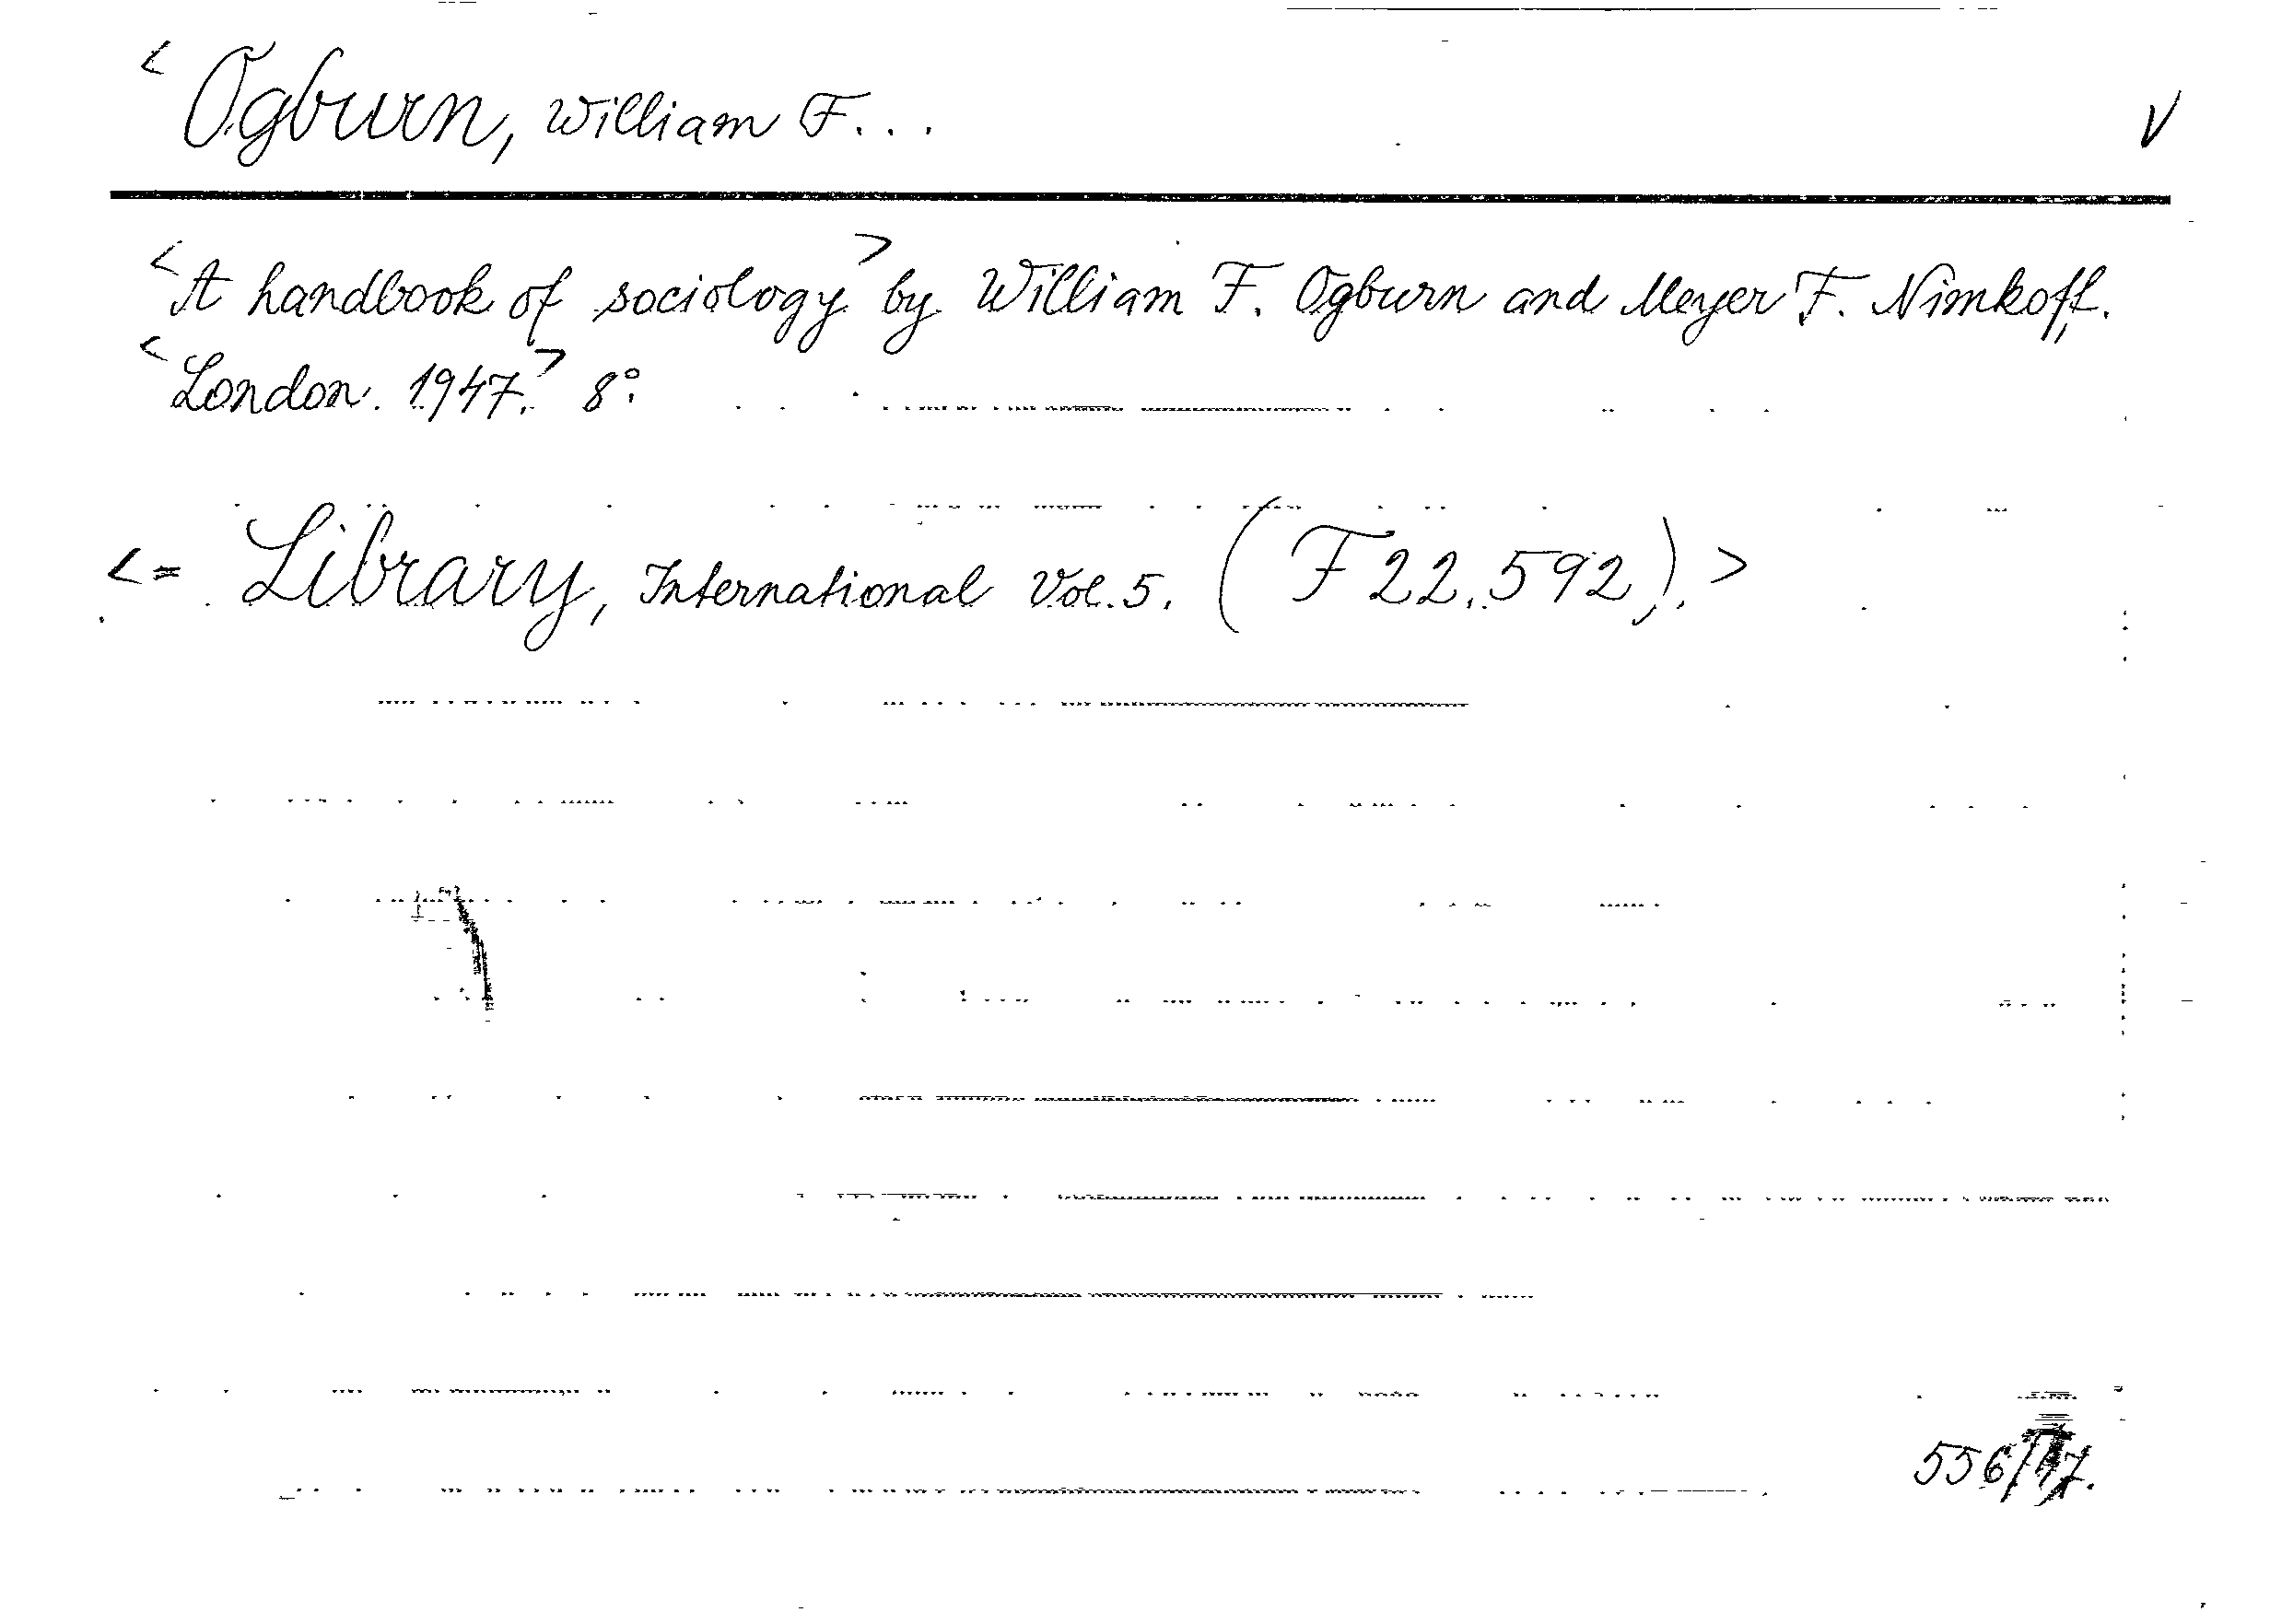 < Ogburn, William F... V
< A handbook of sociology > by William F. Ogburn and Meyer F. Nimkoff.
< London. 1947. > 8°.
<= Library, International Vol. 5. (F 22.592). >
556/47.